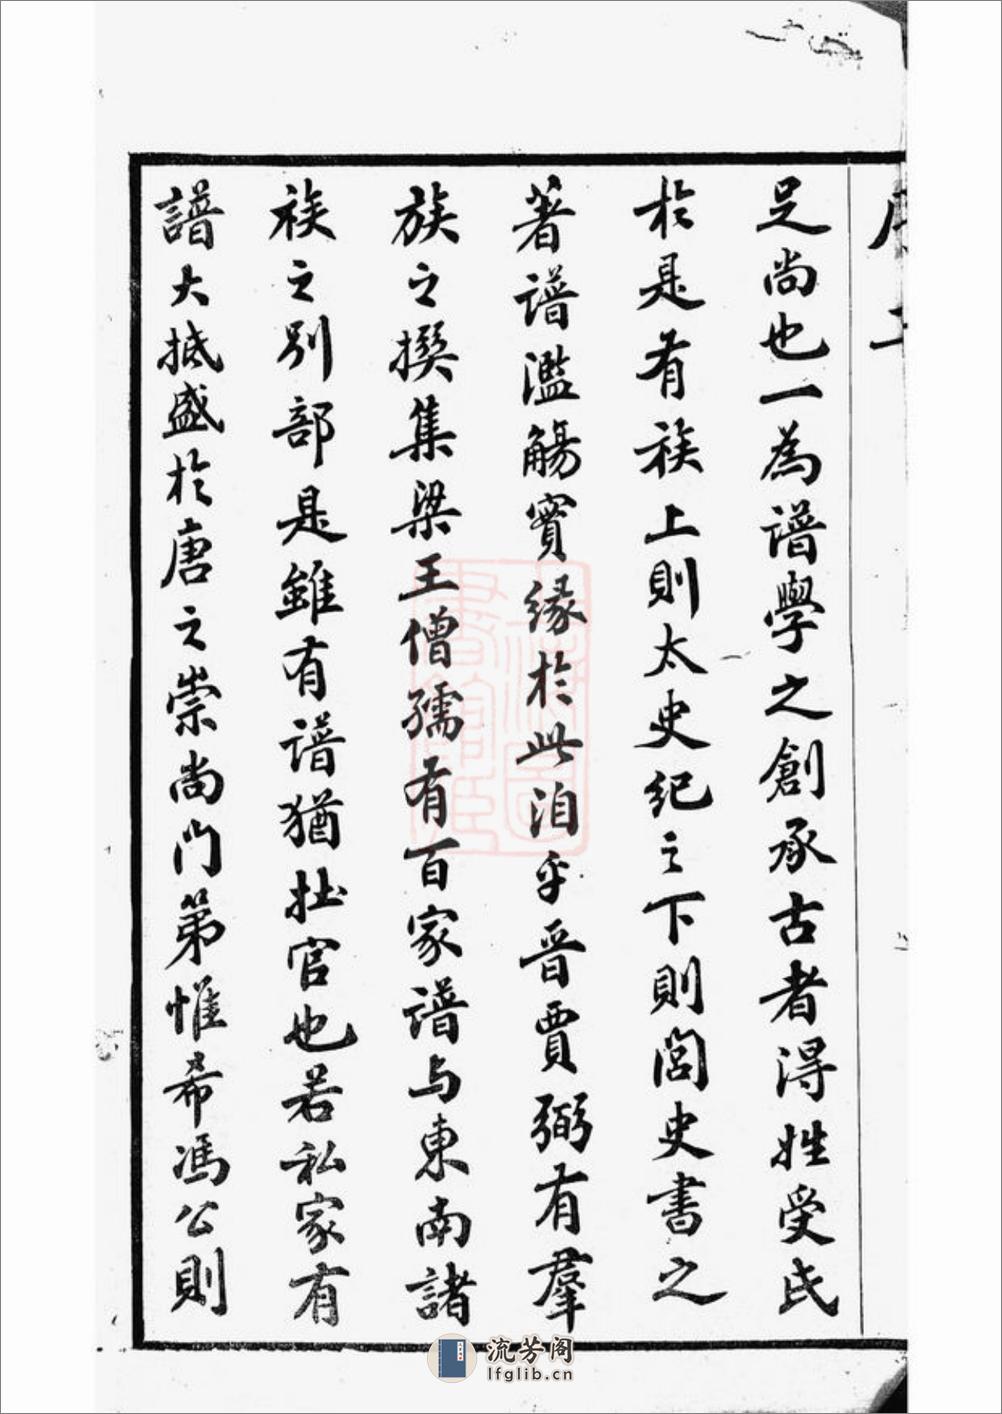 足尚也一為谱學之創承古者淂姓受氏
於是有族上則太史纪之下則閭史書之
著谱濫觴實缘於此洎乎晉賈弼有羣
族之撰集梁王僧孺有百家谱与東南諸
族之别部是雖有谱猶拄官也若私家有
譜大抵盛於唐之崇尚门第惟希馮公則
流芳阁
lfglib.cn